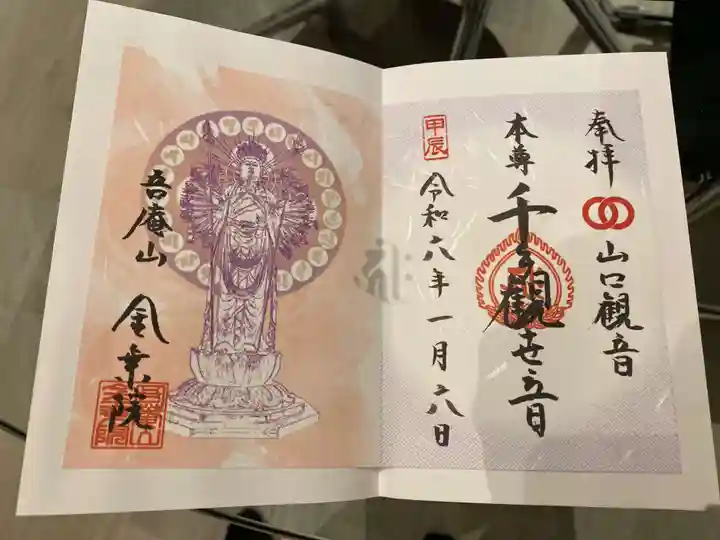 奉拝
山口観音
本尊 千手観世音
甲辰
令和六年一月六日
吾庵山 金乗院